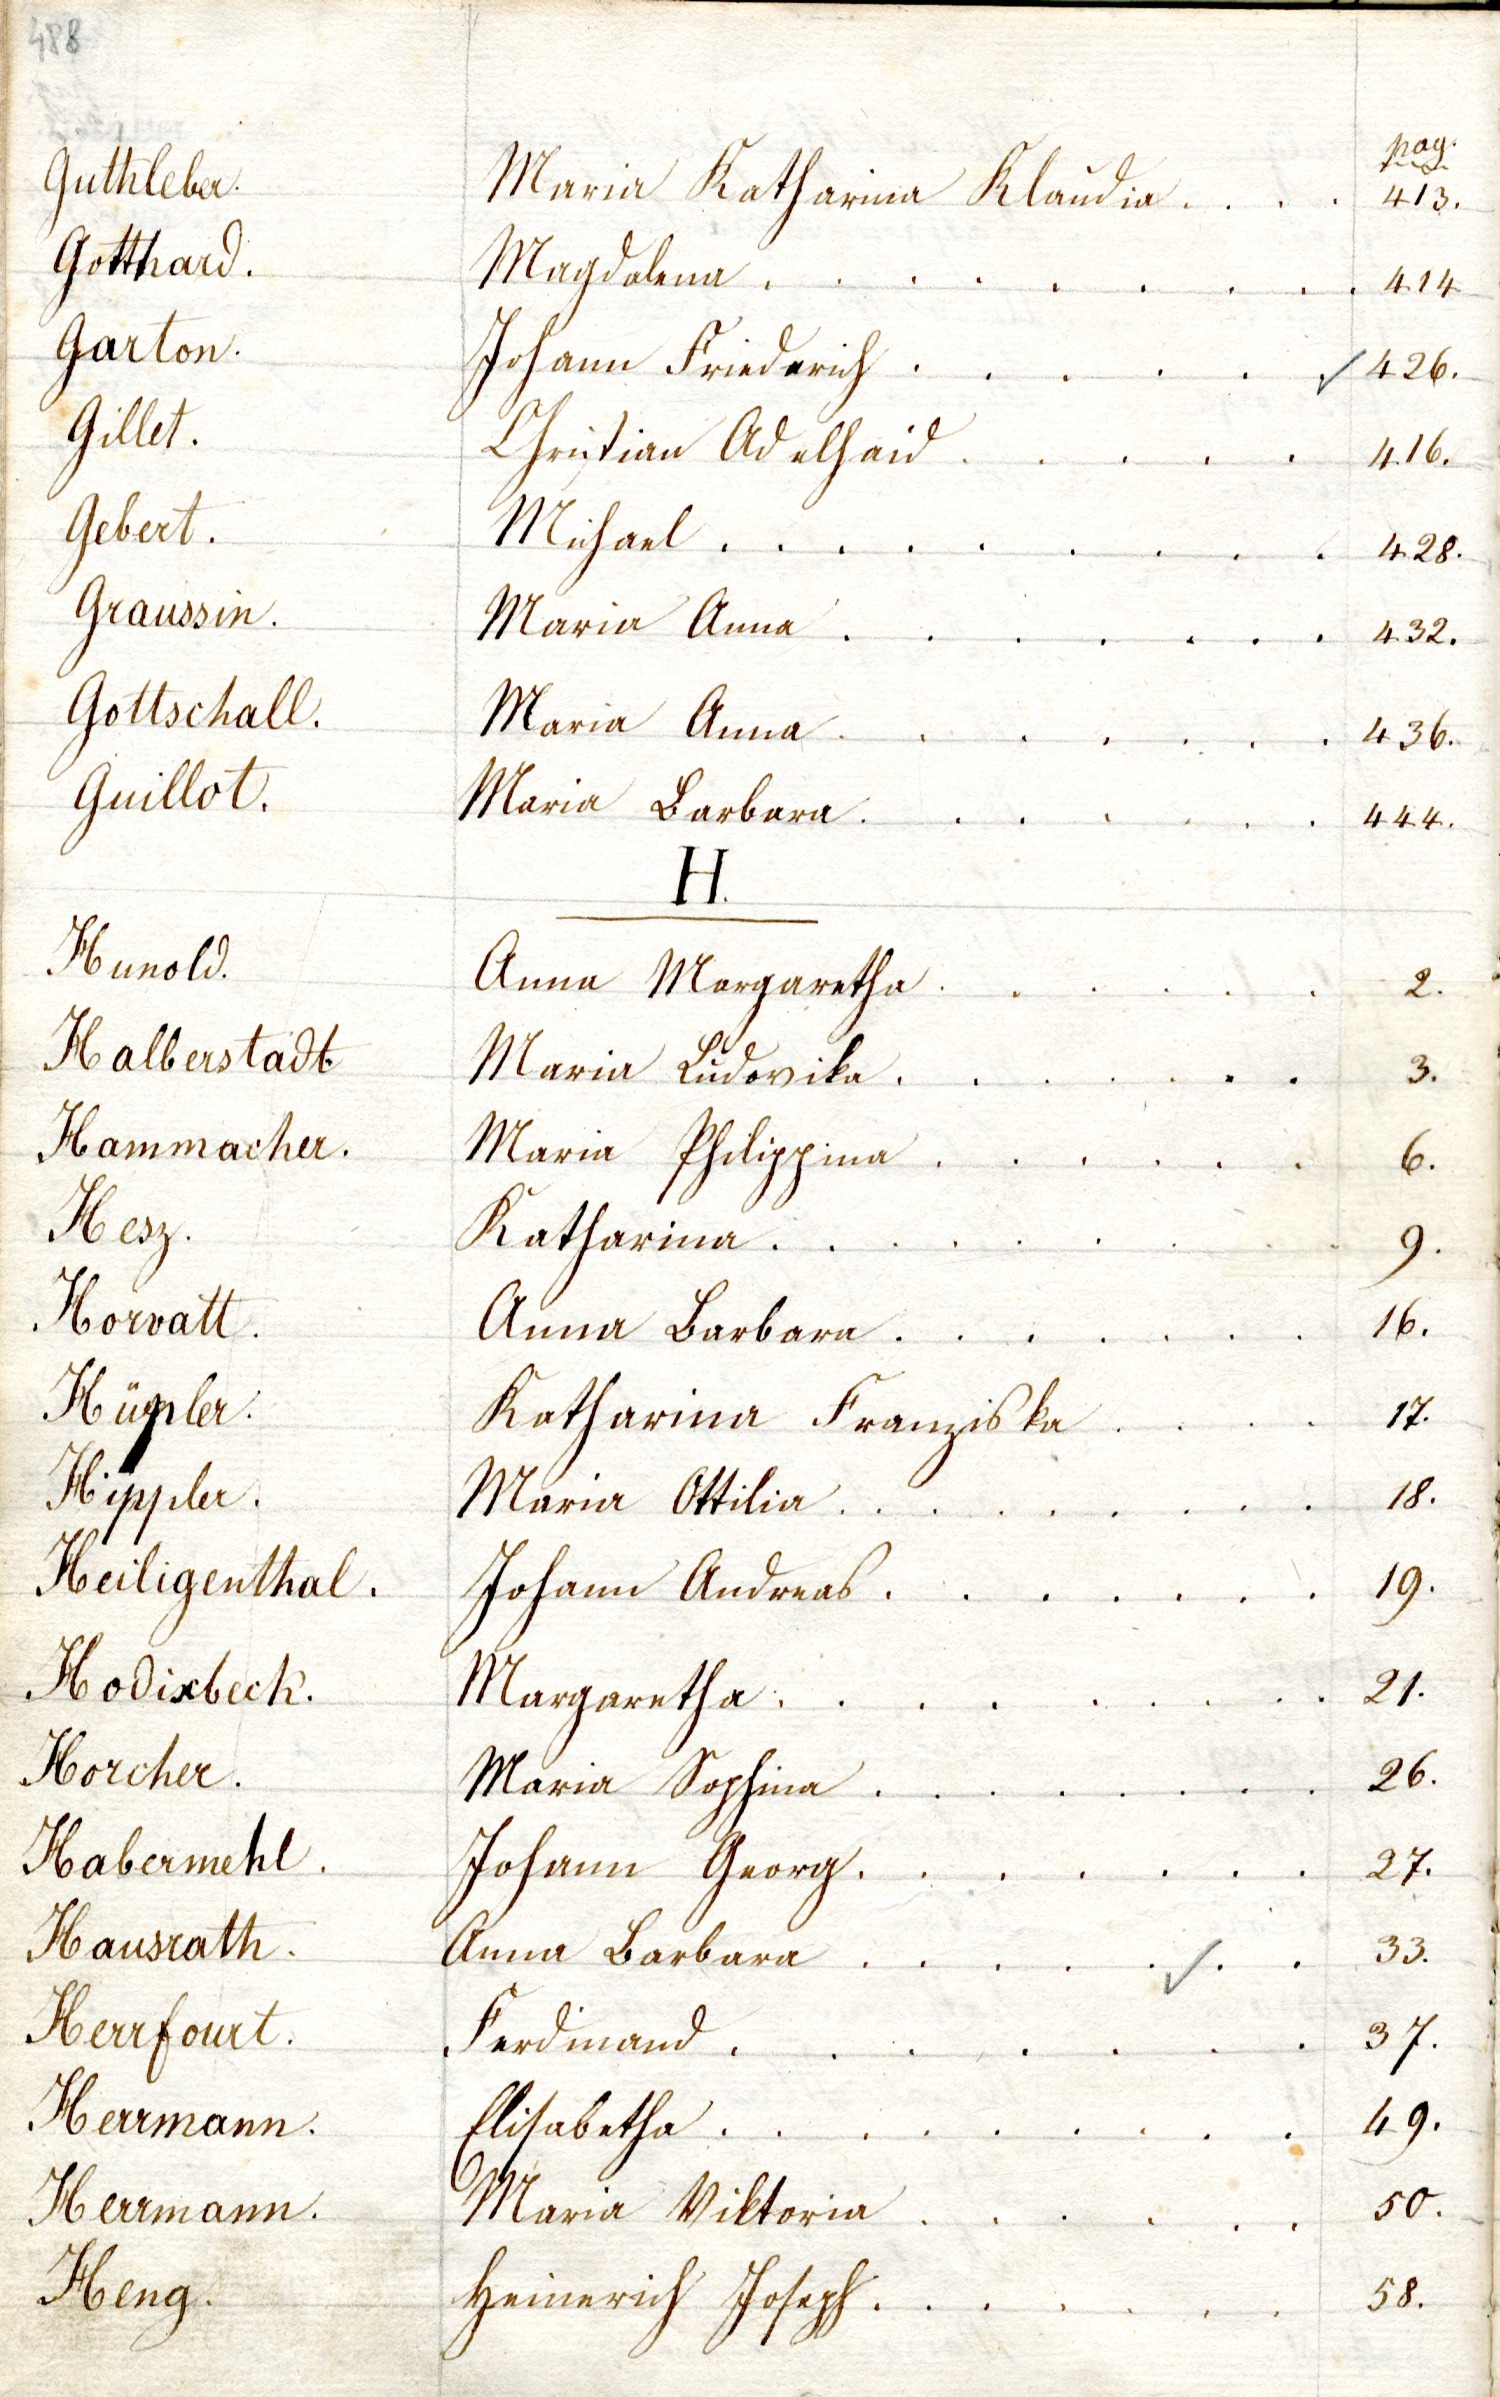 488
pag.
Guthleber. Maria Katharina Klaudia . . . . 413.
Gotthard. Magdalena . . . . . . . . . 414
Garton. Johann Friederich . . . . . . ✓ 426.
Gillet. Christian Adelhaid . . . . . 416.
Gebert. Michael . . . . . . . . . 428.
Graussin. Maria Anna . . . . . . . 432.
Gottschall. Maria Anna . . . . . . . 436.
Guillot. Maria Barbara . . . . . . . 444.
H.
Hunold. Anna Margaretha . . . . . . 2.
Halberstadt Maria Ludovika . . . . . . . 3.
Hammacher. Maria Philippina . . . . . . 6.
Hesz. Katharina . . . . . . . . . 9.
Horvatt. Anna Barbara . . . . . . . 16.
Hüpler. Katharina Franziska . . . . 17.
Hippler. Maria Ottilia . . . . . . . . 18.
Heiligenthal. Johann Andreas . . . . . . . 19.
Hodixbeck. Margaretha . . . . . . . . . 21.
Horcher. Maria Sophina . . . . . . . . 26.
Habermehl. Johann Georg . . . . . . . 27.
Hausrath. Anna Barbara . . . . . ✓ . . 33.
Herrfourt. Ferdinand . . . . . . . . 37.
Herrmann. Elisabetha . . . . . . . . . 49.
Herrmann. Maria Viktoria . . . . . . 50.
Heng. Heinerich Joseph . . . . . . . 58.